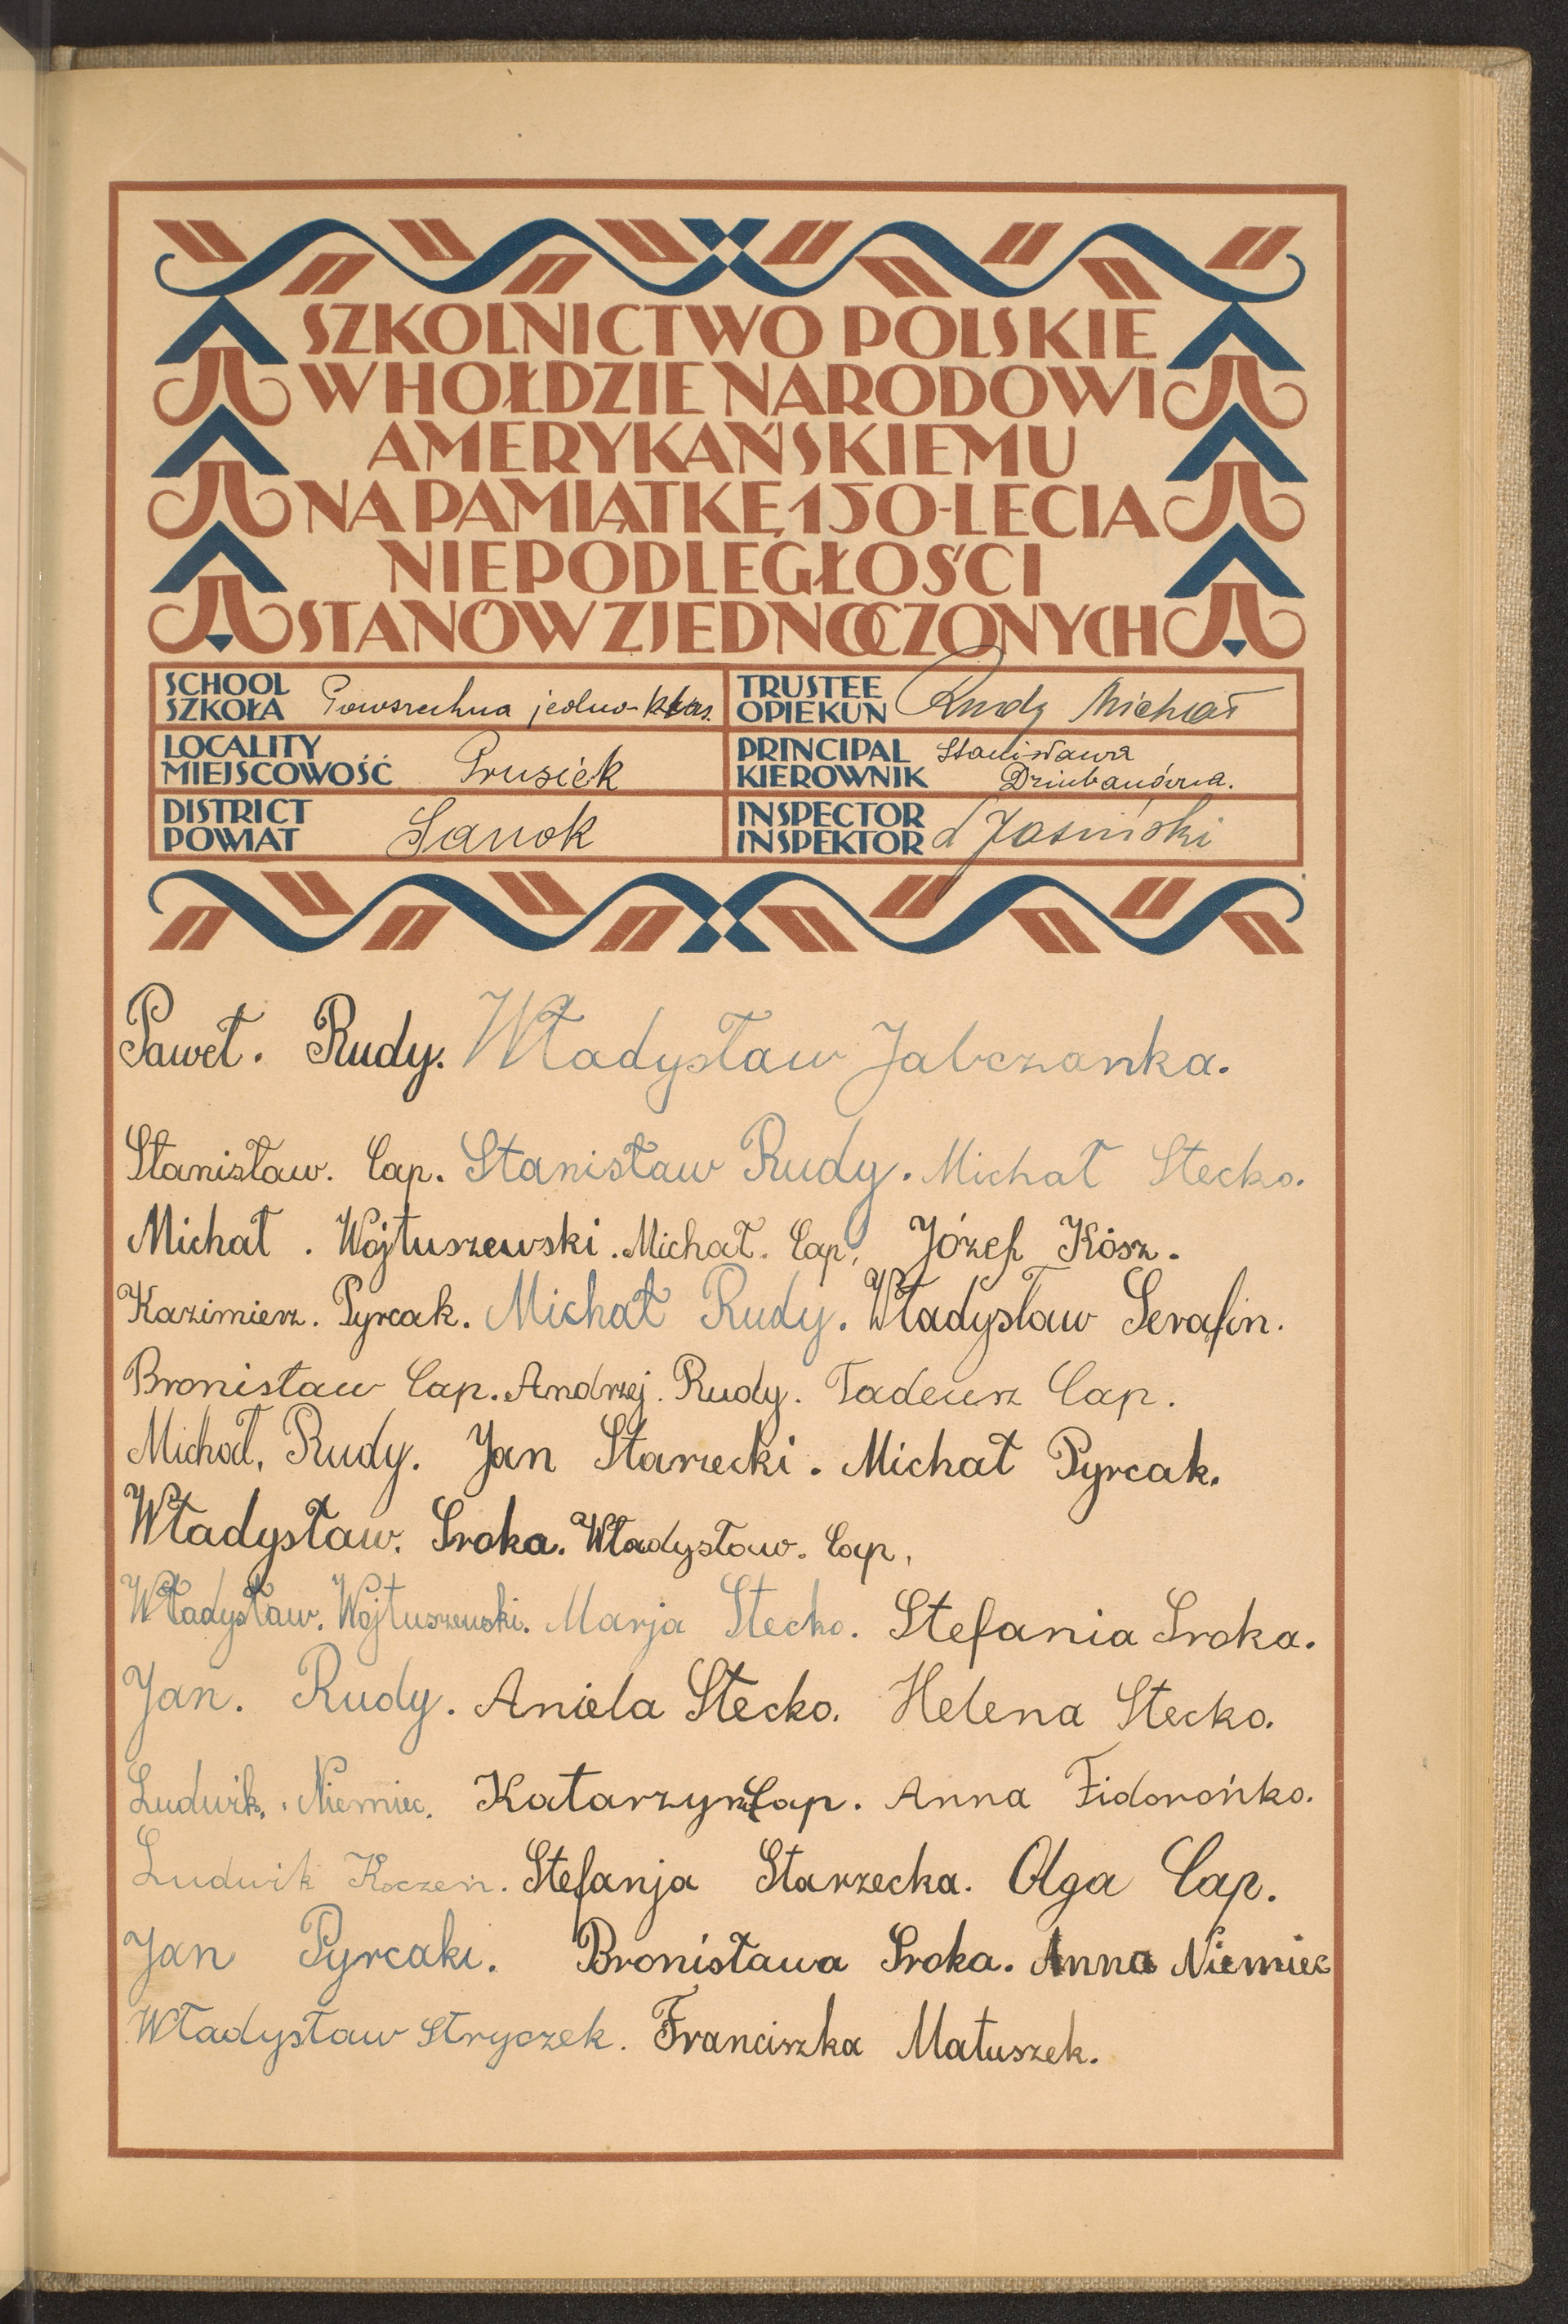 SZKOLNICTWO POLSKIE
W HOŁDZIE NARODOWI
AMERYKAŃSKIEMU
NA PAMIĄTKĘ 150-LECIA
NIEPODLEGŁOŚCI
STANÓW ZJEDNOCZONYCH
SCHOOL
SZKOŁA Powszechna jedno-klas.
TRUSTEE
OPIEKUN Rudy Michał
LOCALITY
MIEJSCOWOŚĆ Prusiek
PRINCIPAL Stanisława
KIEROWNIK Dziubanówna.
DISTRICT
POWIAT Sanok
INSPECTOR
INSPEKTOR Jasiński
Paweł. Rudy. Władysław Jabczanka.
Stanisław. Cap. Stanisław Rudy. Michał Stecko.
Michał. Wojtuszewski. Michał. Cap, Józef Kósz.
Kazimierz. Pyrcak. Michał Rudy. Władysław Serafin.
Bronisław Cap. Andrzej. Rudy. Tadeusz Cap.
Michał, Rudy. Jan Starzecki. Michał Pyrcak.
Władysław. Sroka. Władysław. Cap,
Władysław. Wojtuszewski. Marja Stecko. Stefania Sroka.
Jan. Rudy. Aniela Stecko. Helena Stecko.
Ludwik. Niemiec. Katarzyna Cap. Anna Fidorońko.
Ludwik Koczeń. Stefanja Starzecka. Olga Cap.
Jan Pyrcak. Bronisława Sroka. Anna Niemiec
Władysław Stryczek. Franciszka Matuszek.